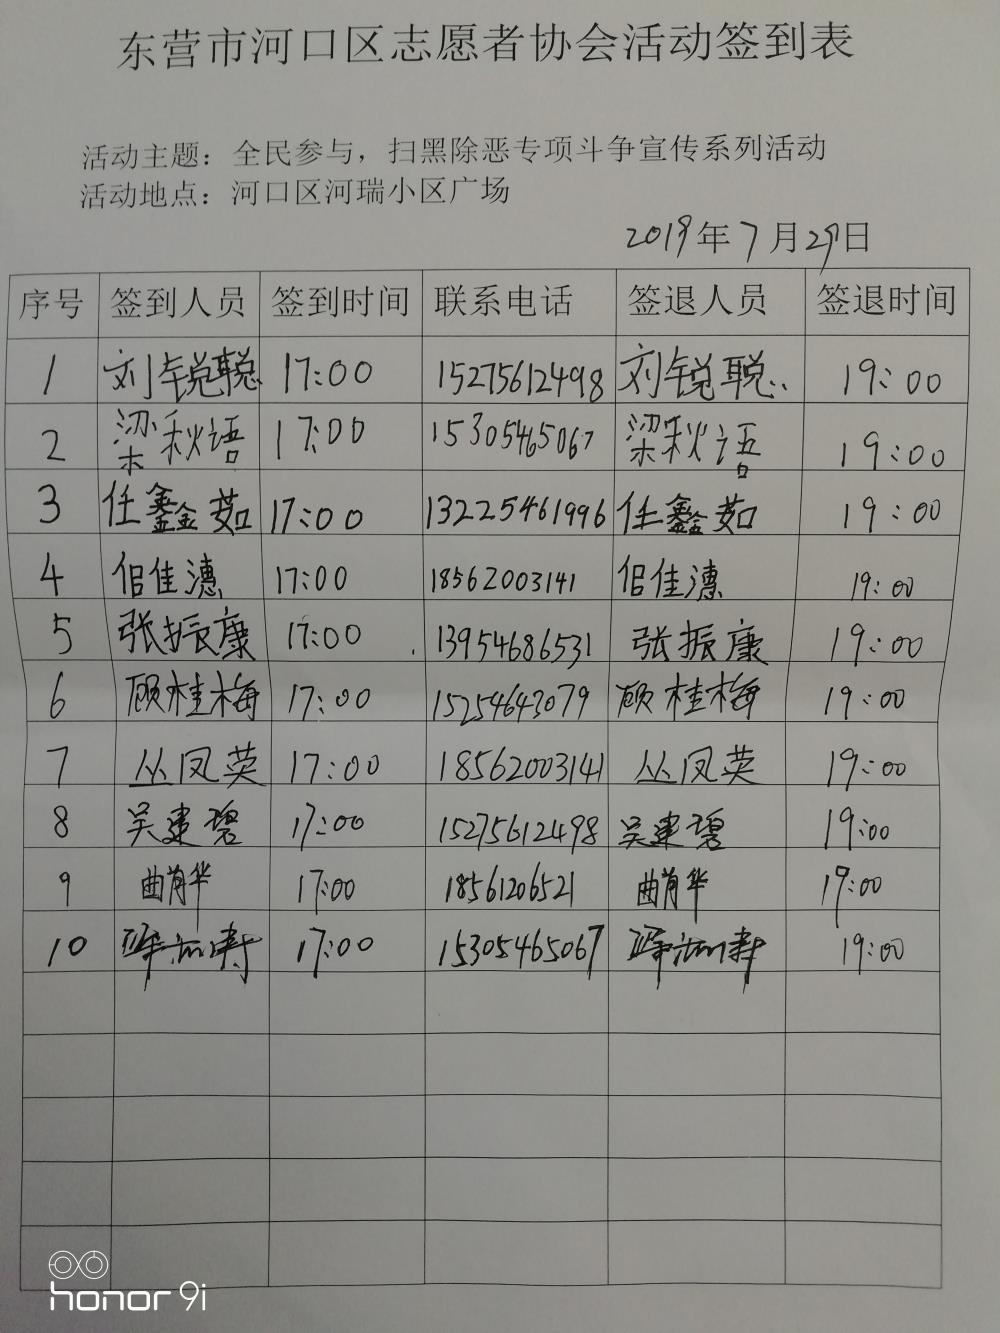 东营市河口区志愿者协会活动签到表
活动主题：全民参与，扫黑除恶专项斗争宣传系列活动
活动地点：河口区河瑞小区广场
2019年7月29日
序号 签到人员 签到时间 联系电话 签退人员 签退时间
1 刘锐聪 17:00 15275612498 刘锐聪 19:00
2 梁秋语 17:00 15305465067 梁秋语 19:00
3 任鑫茹 17:00 13225461996 任鑫茹 19:00
4 佀佳潓 17:00 18562003141 佀佳潓 19:00
5 张振康 17:00 13954686531 张振康 19:00
6 顾桂梅 17:00 15254643079 顾桂梅 19:00
7 丛凤英 17:00 18562003141 丛凤英 19:00
8 吴建碧 17:00 15275612498 吴建碧 19:00
9 曲肖华 17:00 18561206521 曲肖华 19:00
10 17:00 15305465067 19:00
honor 9i